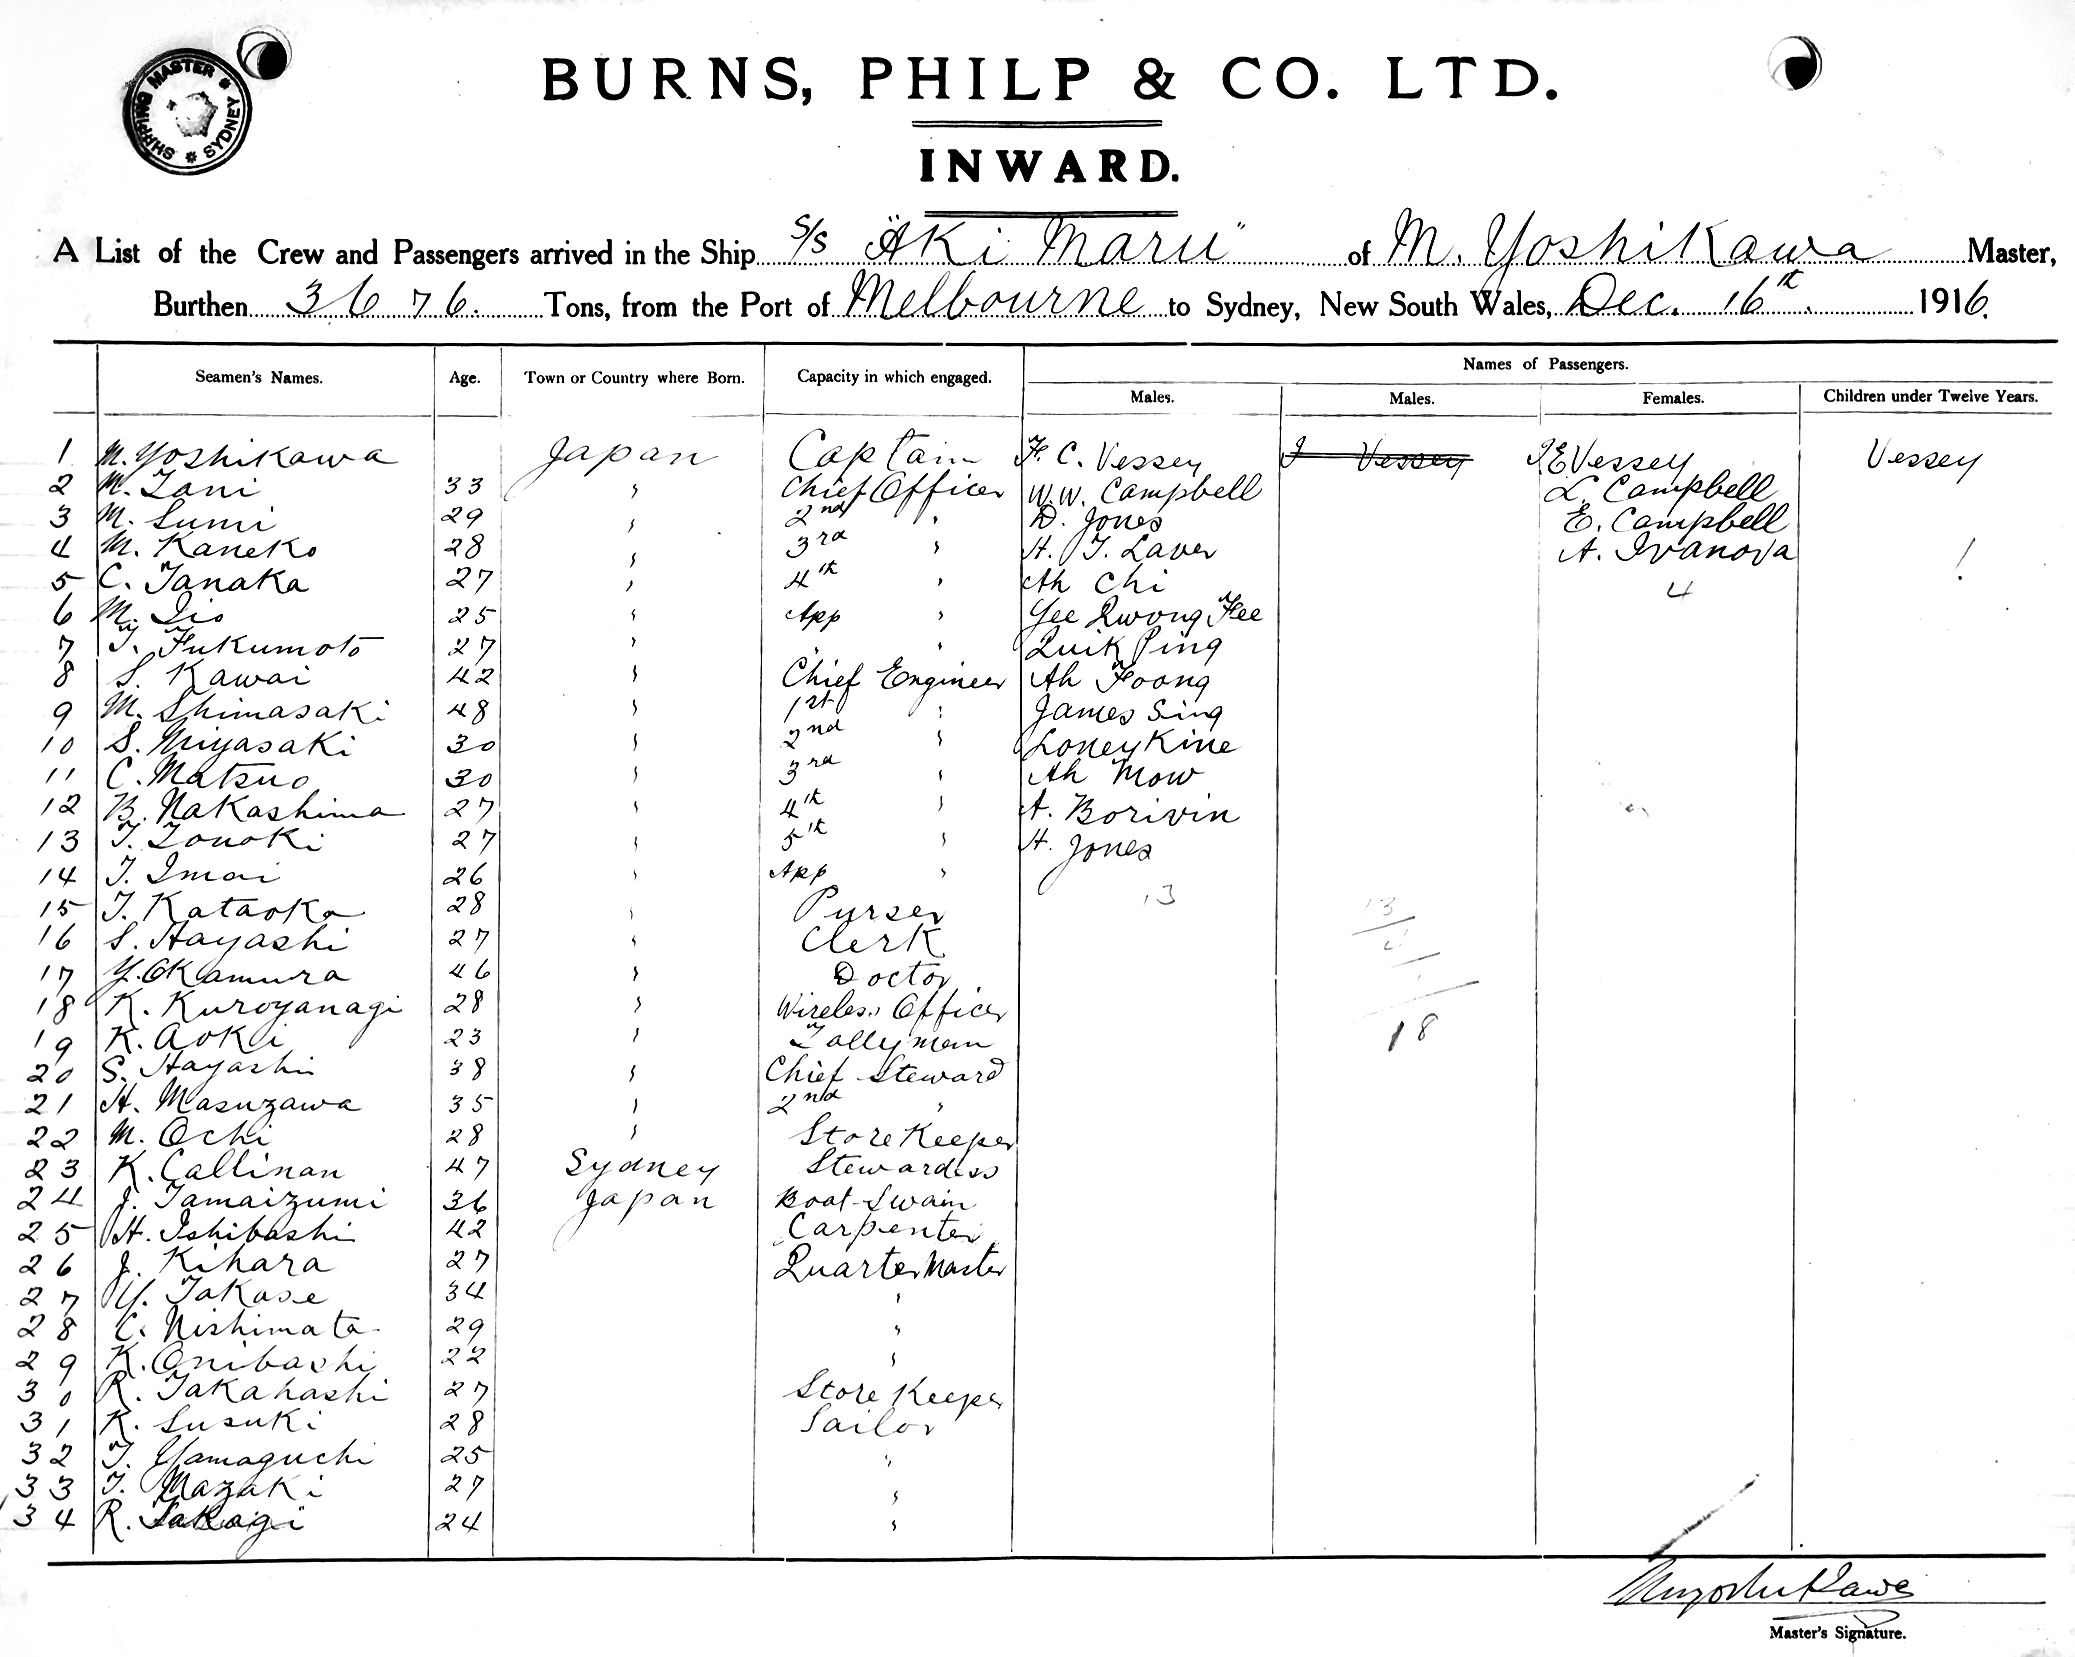 SHIPPING MASTER * SYDNEY *
BURNS, PHILP & CO. LTD.
INWARD.
A List of the Crew and Passengers arrived in the Ship S/S "Aki Maru" of M. Yoshikawa Master,
Burthen 3676. Tons, from the Port of Melbourne to Sydney, New South Wales, Dec. 16th. 1916.
Names of Passengers.
Seamen's Names. Age. Town or Country where Born. Capacity in which engaged. Males. Males. Females. Children under Twelve Years.
1 M. Yoshikawa Japan Captain F. C. Vessey J Vessey J E Vessey Vessey
2 M. Tani 33 " Chief Officer W. W. Campbell L. Campbell
3 M. Sumi 29 " 2nd " D. Jones E. Campbell
4 M. Kaneko 28 " 3rd " H. T. Laver A. Ivanova
5 C. Tanaka 27 " 4th " Ah Chi 4 1
6 M. Iio 25 " App " Yee Quong Fee
7 T. Fukumoto 27 " " " Quik Ping
8 S. Kawai 42 " Chief Engineer Ah Foong
9 M. Shimasaki 48 " 1st " James Sing
10 S. Miyasaki 30 " 2nd " Loney Kine
11 C. Matsuo 30 " 3rd " Ah Mow
12 B. Nakashima 27 " 4th " A. Borivin
13 T. Tonoki 27 " 5th " H. Jones
14 T. Imai 26 " App "
15 T. Kataoka 28 " Purser 13 13
16 S. Hayashi 27 " Clerk
17 Y. Okamura 46 " Doctor
18 K. Kuroyanagi 28 " Wireless Officer
19 K. Aoki 23 " Tallyman 18
20 S. Hayashi 38 " Chief Steward
21 H. Masuzawa 35 " 2nd "
22 M. Ochi 28 " Store Keeper
23 K. Callinan 47 Sydney Stewardess
24 J. Tamaizumi 36 Japan Boat-Swain
25 H. Ishibashi 42 Carpenter
26 J. Kihara 27 Quarter Master
27 Y. Takase 34 "
28 C. Nishimata 29 "
29 K. Onibashi 22 "
30 R. Takahashi 27 Store Keeper
31 K. Susuki 28 Sailor
32 T. Yamaguchi 25 "
33 T. Mazaki 27 "
34 R. Takagi 24 "
M Yoshikawa
Master's Signature.